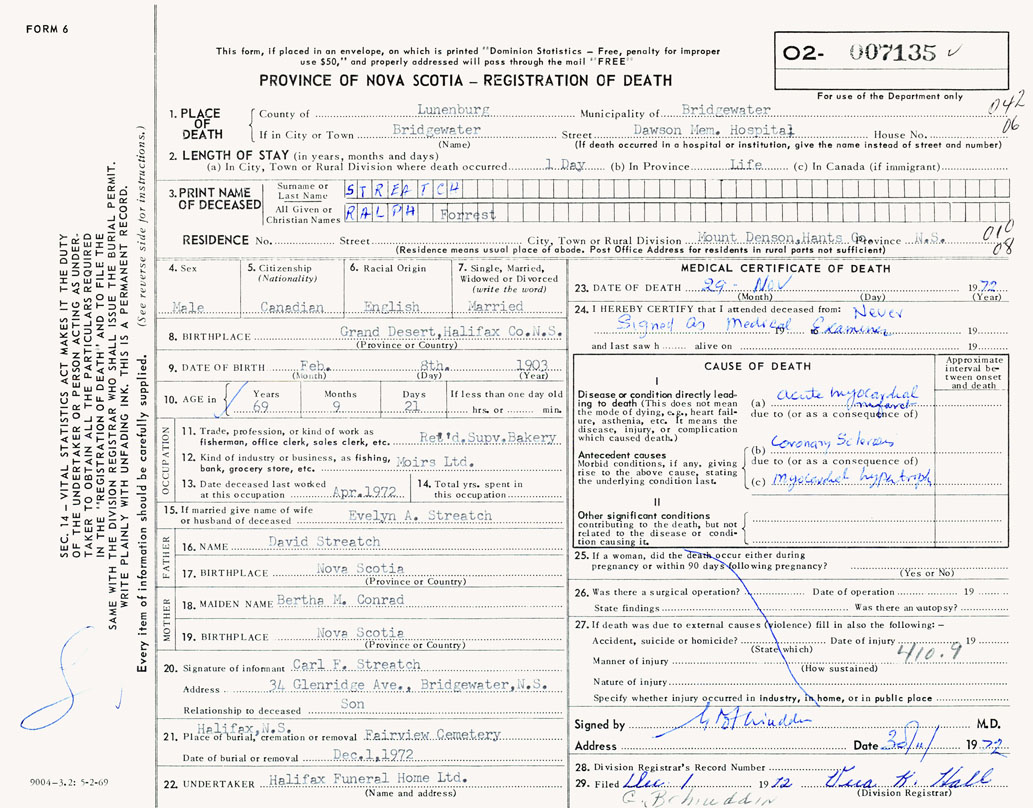 FORM 6
This form, if placed in an envelope, on which is printed "Dominion Statistics – Free, penalty for improper
use $50," and properly addressed will pass through the mail "FREE"
PROVINCE OF NOVA SCOTIA – REGISTRATION OF DEATH
O2- 007135
For use of the Department only
042
06
1. PLACE OF DEATH
County of Lunenburg Municipality of Bridgewater
If in City or Town Bridgewater Street Dawson Mem. Hospital House No.
(Name) (If death occurred in a hospital or institution, give the name instead of street and number)
2. LENGTH OF STAY (in years, months and days)
(a) In City, Town or Rural Division where death occurred 1 Day (b) In Province Life (c) In Canada (if immigrant)
3. PRINT NAME OF DECEASED
Surname or Last Name STREATCH
All Given or Christian Names RALPH Forrest
010
08
RESIDENCE No. Street City, Town or Rural Division Mount Denson,Hants Co. Province N.S.
(Residence means usual place of abode. Post Office Address for residents in rural parts not sufficient)
4. Sex
Male
5. Citizenship
(Nationality)
Canadian
6. Racial Origin
English
7. Single, Married,
Widowed or Divorced
(write the word)
Married
8. BIRTHPLACE Grand Desert,Halifax Co.N.S.
(Province or Country)
9. DATE OF BIRTH Feb. 8th. 1903
(Month) (Day) (Year)
10. AGE in Years Months Days If less than one day old
69 9 21 hrs. or min.
OCCUPATION
11. Trade, profession, or kind of work as
fisherman, office clerk, sales clerk, etc. Ret'd.Supv.Bakery
12. Kind of industry or business, as fishing,
bank, grocery store, etc. Moirs Ltd.
13. Date deceased last worked
at this occupation Apr.1972
14. Total yrs. spent in
this occupation
15. If married give name of wife
or husband of deceased Evelyn A. Streatch
FATHER
16. NAME David Streatch
17. BIRTHPLACE Nova Scotia
(Province or Country)
MOTHER
18. MAIDEN NAME Bertha M. Conrad
19. BIRTHPLACE Nova Scotia
(Province or Country)
20. Signature of informant Carl F. Streatch
Address 34 Glenridge Ave., Bridgewater,N.S.
Relationship to deceased Son
Halifax,N.S.
21. Place of burial, cremation or removal Fairview Cemetery
Date of burial or removal Dec.1,1972
22. UNDERTAKER Halifax Funeral Home Ltd.
(Name and address)
MEDICAL CERTIFICATE OF DEATH
23. DATE OF DEATH 29 - Nov 1972
(Month) (Day) (Year)
24. I HEREBY CERTIFY that I attended deceased from: Never
Signed as Medical Examiner 19
and last saw h alive on 19
CAUSE OF DEATH
Approximate
interval be-
tween onset
and death
I
Disease or condition directly lead-
ing to death (This does not mean
the mode of dying, e.g., heart fail-
ure, asthenia, etc. It means the
disease, injury, or complication
which caused death.)
(a) acute myocardial
infarct
due to (or as a consequence of)
Antecedent causes
Morbid conditions, if any, giving
rise to the above cause, stating
the underlying condition last.
(b) Coronary Sclerosis
due to (or as a consequence of)
(c) myocardial hypertroph
II
Other significant conditions
contributing to the death, but not
related to the disease or condi-
tion causing it.
25. If a woman, did the death occur either during
pregnancy or within 90 days following pregnancy?
(Yes or No)
26. Was there a surgical operation? Date of operation 19
State findings Was there an autopsy?
27. If death was due to external causes (violence) fill in also the following: –
Accident, suicide or homicide? Date of injury 19
(State which)
410.9
Manner of injury
(How sustained)
Nature of injury
Specify whether injury occurred in industry, in home, or in public place
Signed by M.D.
Address Date 30/11/ 1972
28. Division Registrar's Record Number
29. Filed Dec 1 1972 Vera K. Hall
(Division Registrar)
SEC. 14 – VITAL STATISTICS ACT MAKES IT THE DUTY
OF THE UNDERTAKER OR PERSON ACTING AS UNDER-
TAKER TO OBTAIN ALL THE PARTICULARS REQUIRED
IN THE "REGISTRATION OF DEATH" AND TO FILE THE
SAME WITH THE DIVISION REGISTRAR WHO SHALL ISSUE THE BURIAL PERMIT.
WRITE PLAINLY WITH UNFADING INK. THIS IS A PERMANENT RECORD.
Every item of information should be carefully supplied. (See reverse side for instructions.)
9004-3.2: 5-2-69